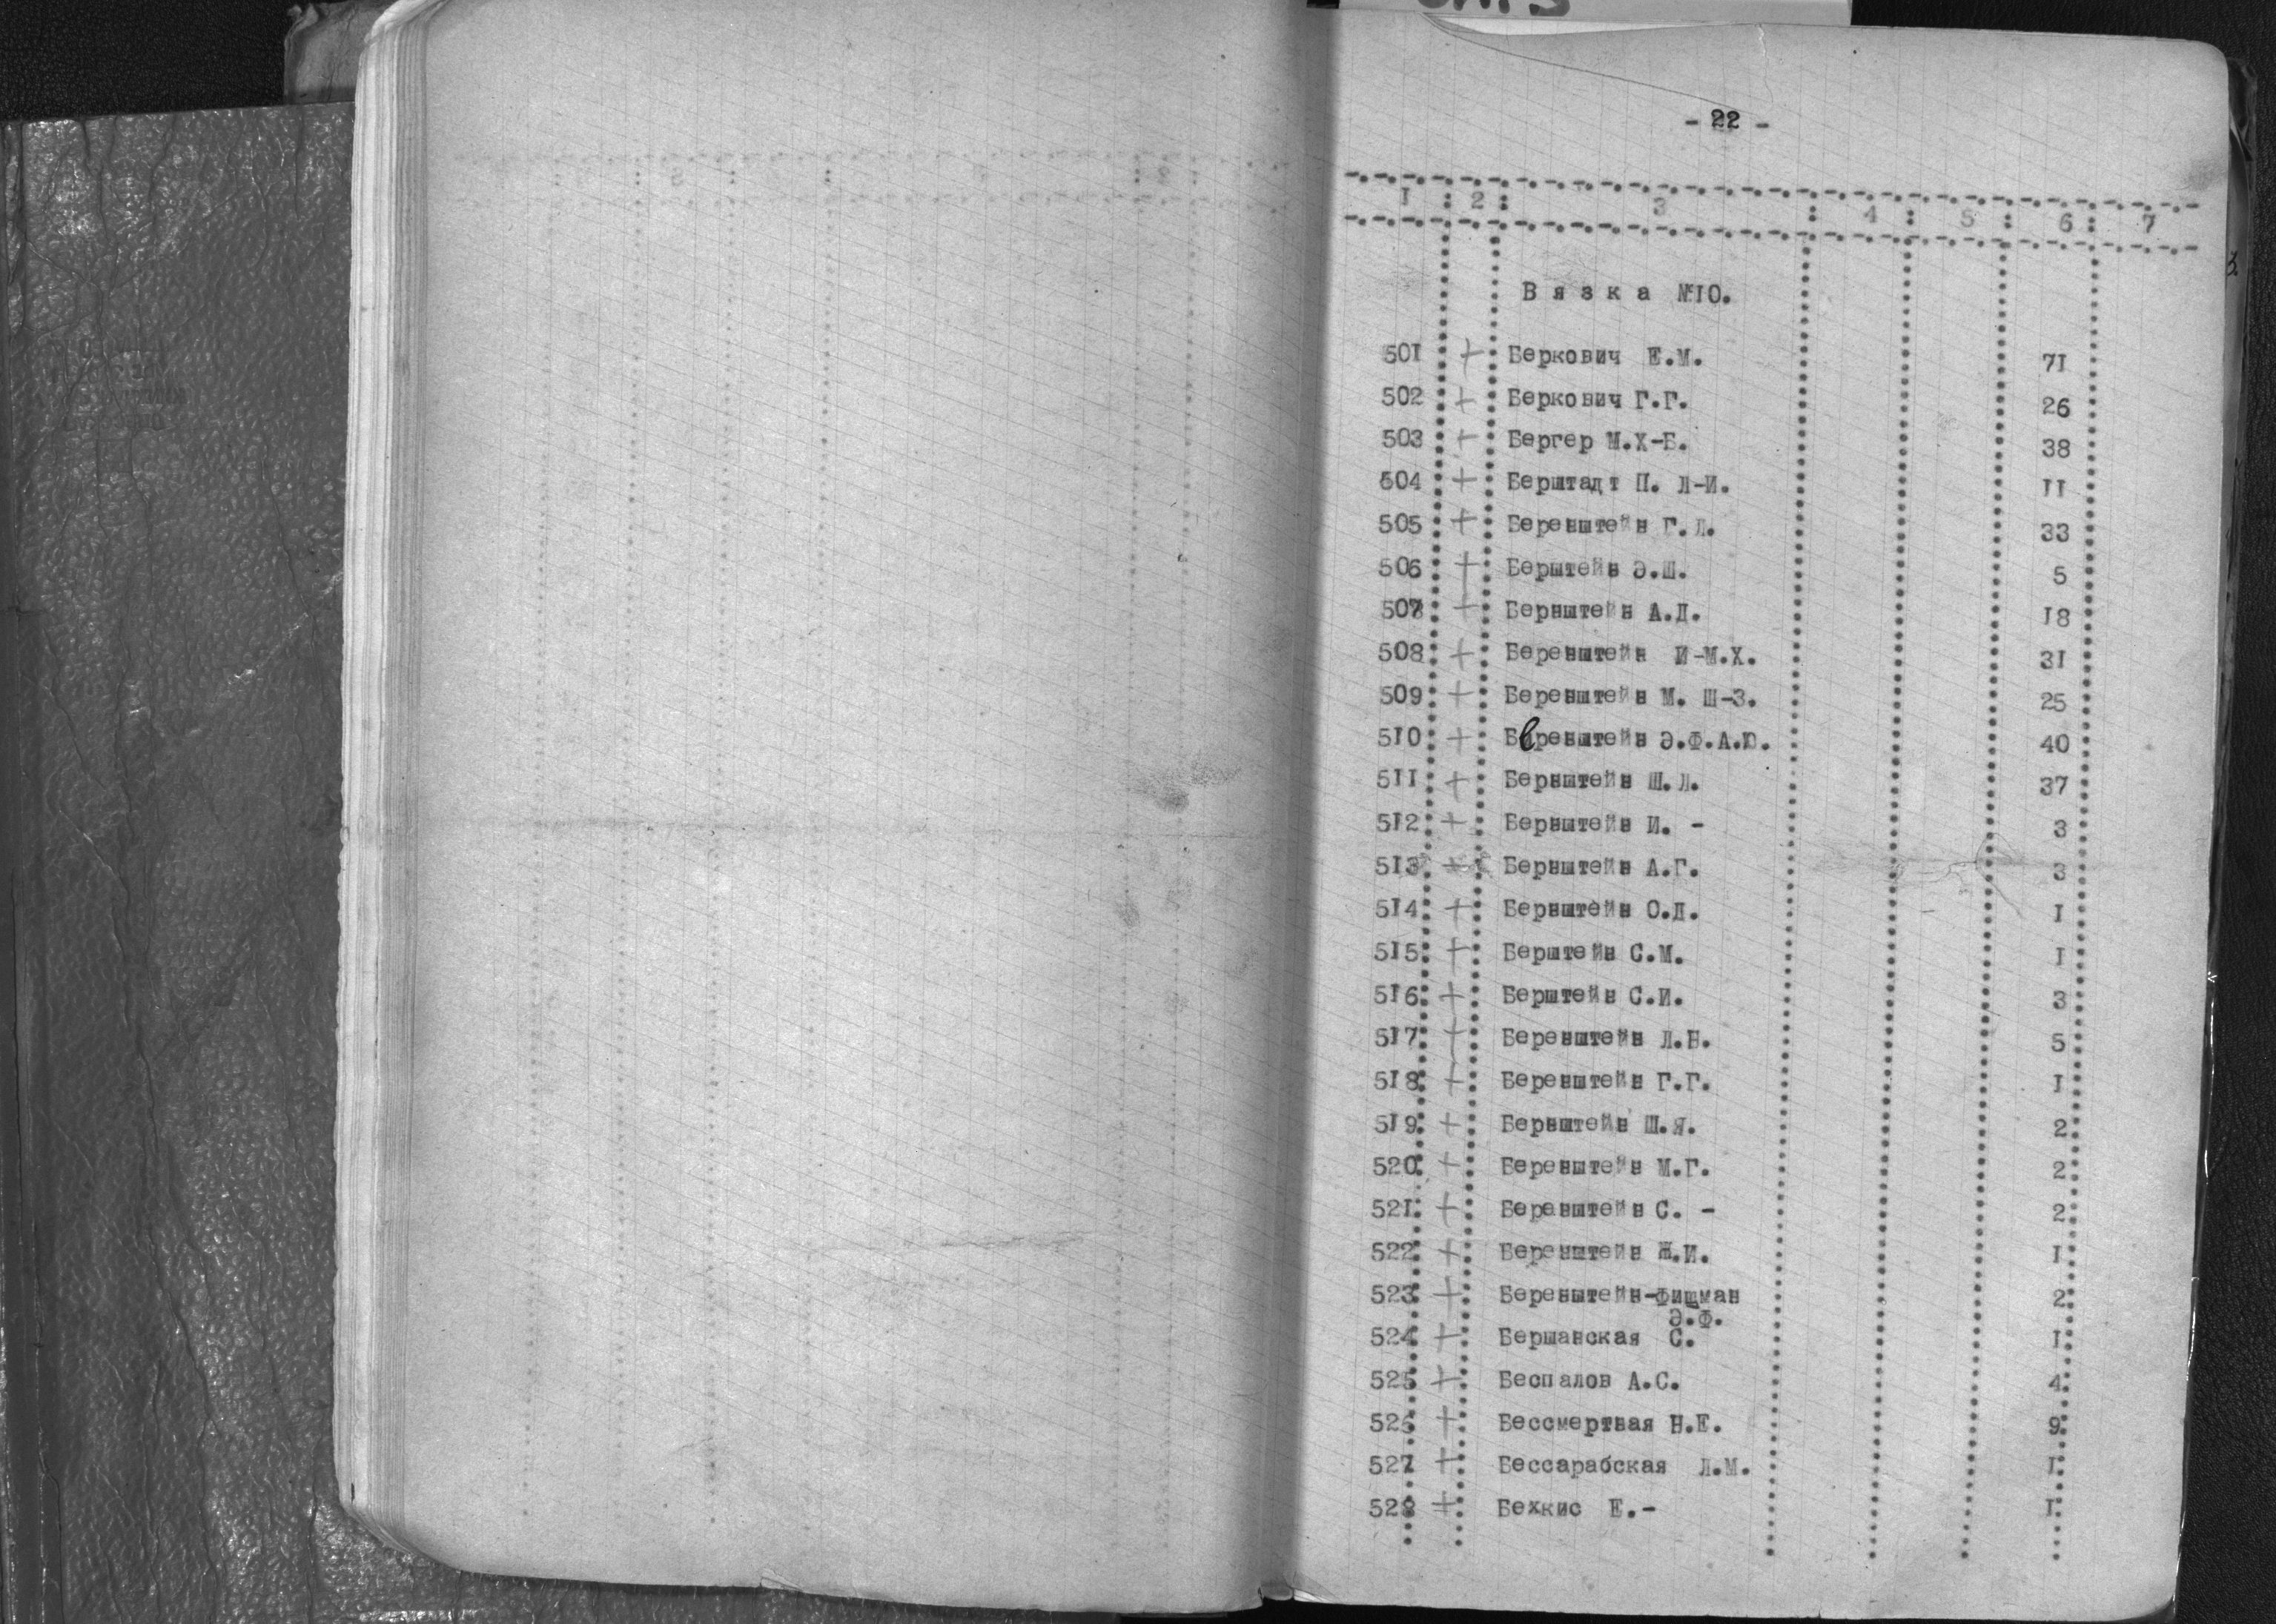 - 22 -
I : 2 : 3 : 4 : 5 : 6 : 7
Вязка №IO.
50I + Беркович Е.М. 7I
502 + Беркович Г.Г. 26
503 + Бергер М.Х-Б. 38
504 + Берштадт П. Л-И. II
505 + Беренштейн Г.Л. 33
506 + Берштейн Э.Ш. 5
507 + Бернштейн А.Д. I8
508 + Беренштейн И-М.Х. 3I
509 + Беренштейн М. Ш-З. 25
5I0 + Беренштейн Э.Ф.А.Ю. 40
5II + Бернштейн Ш.Л. 37
5I2 + Бернштейн И. - 3
5I3 + Бернштейн А.Г. 3
5I4 + Бернштейн О.Д. I
5I5 + Берштейн С.М. I
5I6 + Берштейн С.И. 3
5I7 + Беренштейн Л.Н. 5
5I8 + Беренштейн Г.Г. I
5I9 + Бернштейн Ш.Я. 2
520 + Беренштейн М.Г. 2
52I + Беренштейн С. - 2
522 + Беренштейн Ж.И. I
523 + Беренштейн-Фишман 2
Э.Ф.
524 + Бершанская С. I
525 + Беспалов А.С. 4
526 + Бессмертная Н.Е. 9
527 + Бессарабская Л.М. I
528 + Бехкис Е.- I